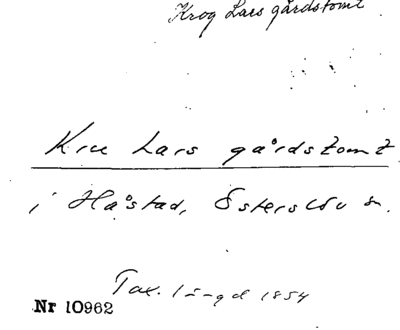 Krog Lars gårdstomt
Kru Lars gårdstomt
i Håstad, Österslöv sn.
Tax. längd 1854
Nr 10962